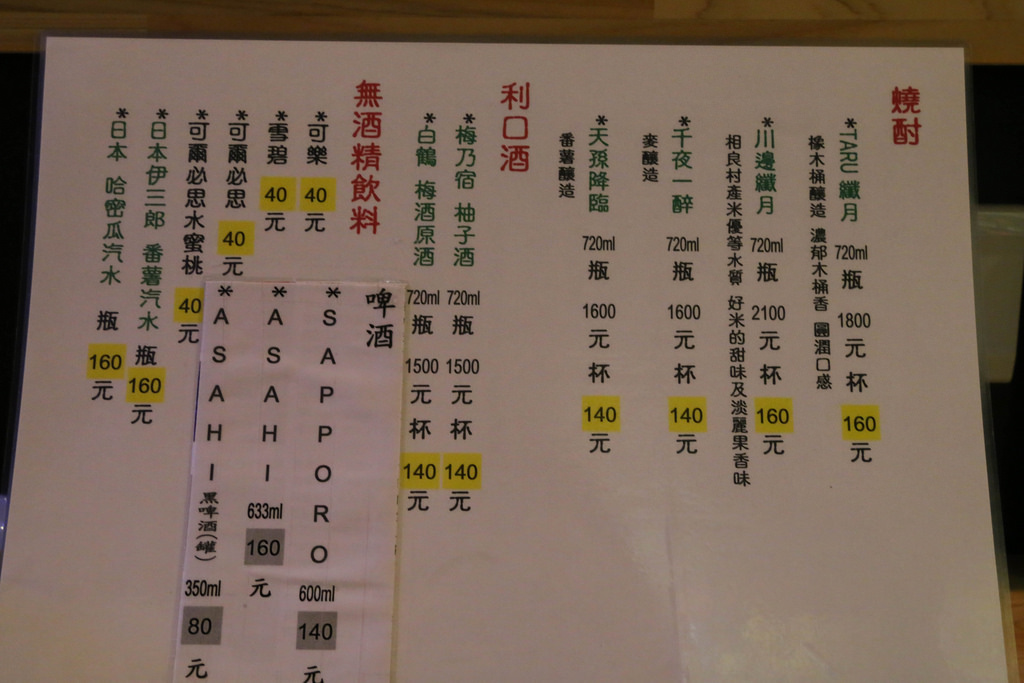 燒酎
*TARU 纖月 720ml 瓶 1800 元 杯 160 元
橡木桶釀造 濃郁木桶香 圓潤口感
*川邊纖月 720ml 瓶 2100 元 杯 160 元
相良村產米優等水質 好米的甜味及淡麗果香味
*千夜一醉 720ml 瓶 1600 元 杯 140 元
麥釀造
*天孫降臨 720ml 瓶 1600 元 杯 140 元
番薯釀造
利口酒
*梅乃宿 柚子酒 720ml 瓶 1500 元 杯 140 元
*白鶴 梅酒原酒 720ml 瓶 1500 元 杯 140 元
無酒精飲料
*可樂 40 元
*雪碧 40 元
*可爾必思 40 元
*可爾必思水蜜桃 40 元
*日本伊三郎 番薯汽水 瓶 160 元
*日本 哈密瓜汽水 瓶 160 元
啤酒
*SAPPORO 600ml 140 元
*ASAHI 633ml 160 元
*ASAHI 黑啤酒(罐) 350ml 80 元